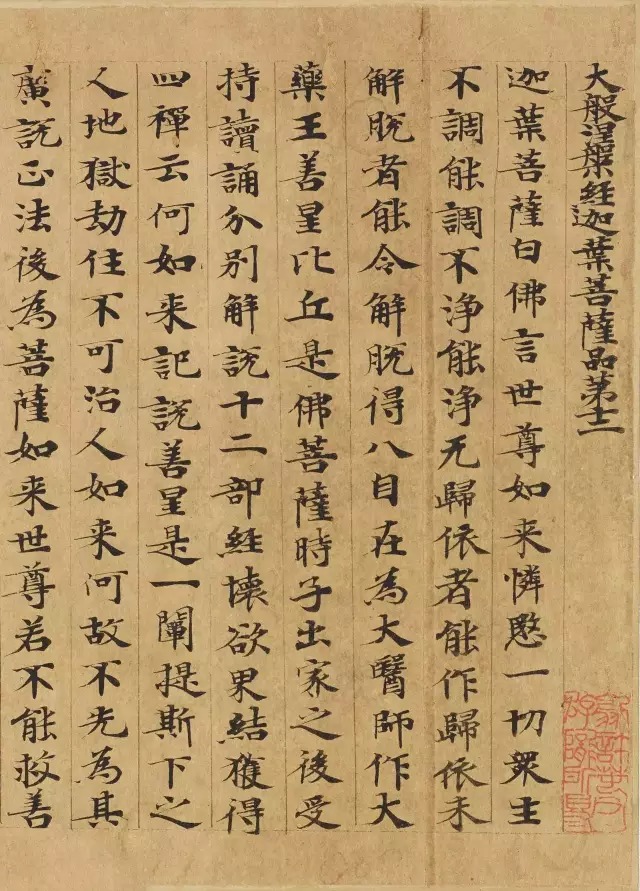 大般涅槃經迦葉菩薩品第十二
迦葉菩薩白佛言世尊如来憐愍一切衆生
不調能調不淨能淨无歸依者能作歸依未
解脫者能令解脫得八自在為大醫師作大
藥王善星比丘是佛菩薩時子出家之後受
持讀誦分別解說十二部經壞欲果結獲得
四禪云何如来記說善星是一闡提斯下之
人地獄劫住不可治人如来何故不先為其
廣說正法後為菩薩如来世尊若不能救善